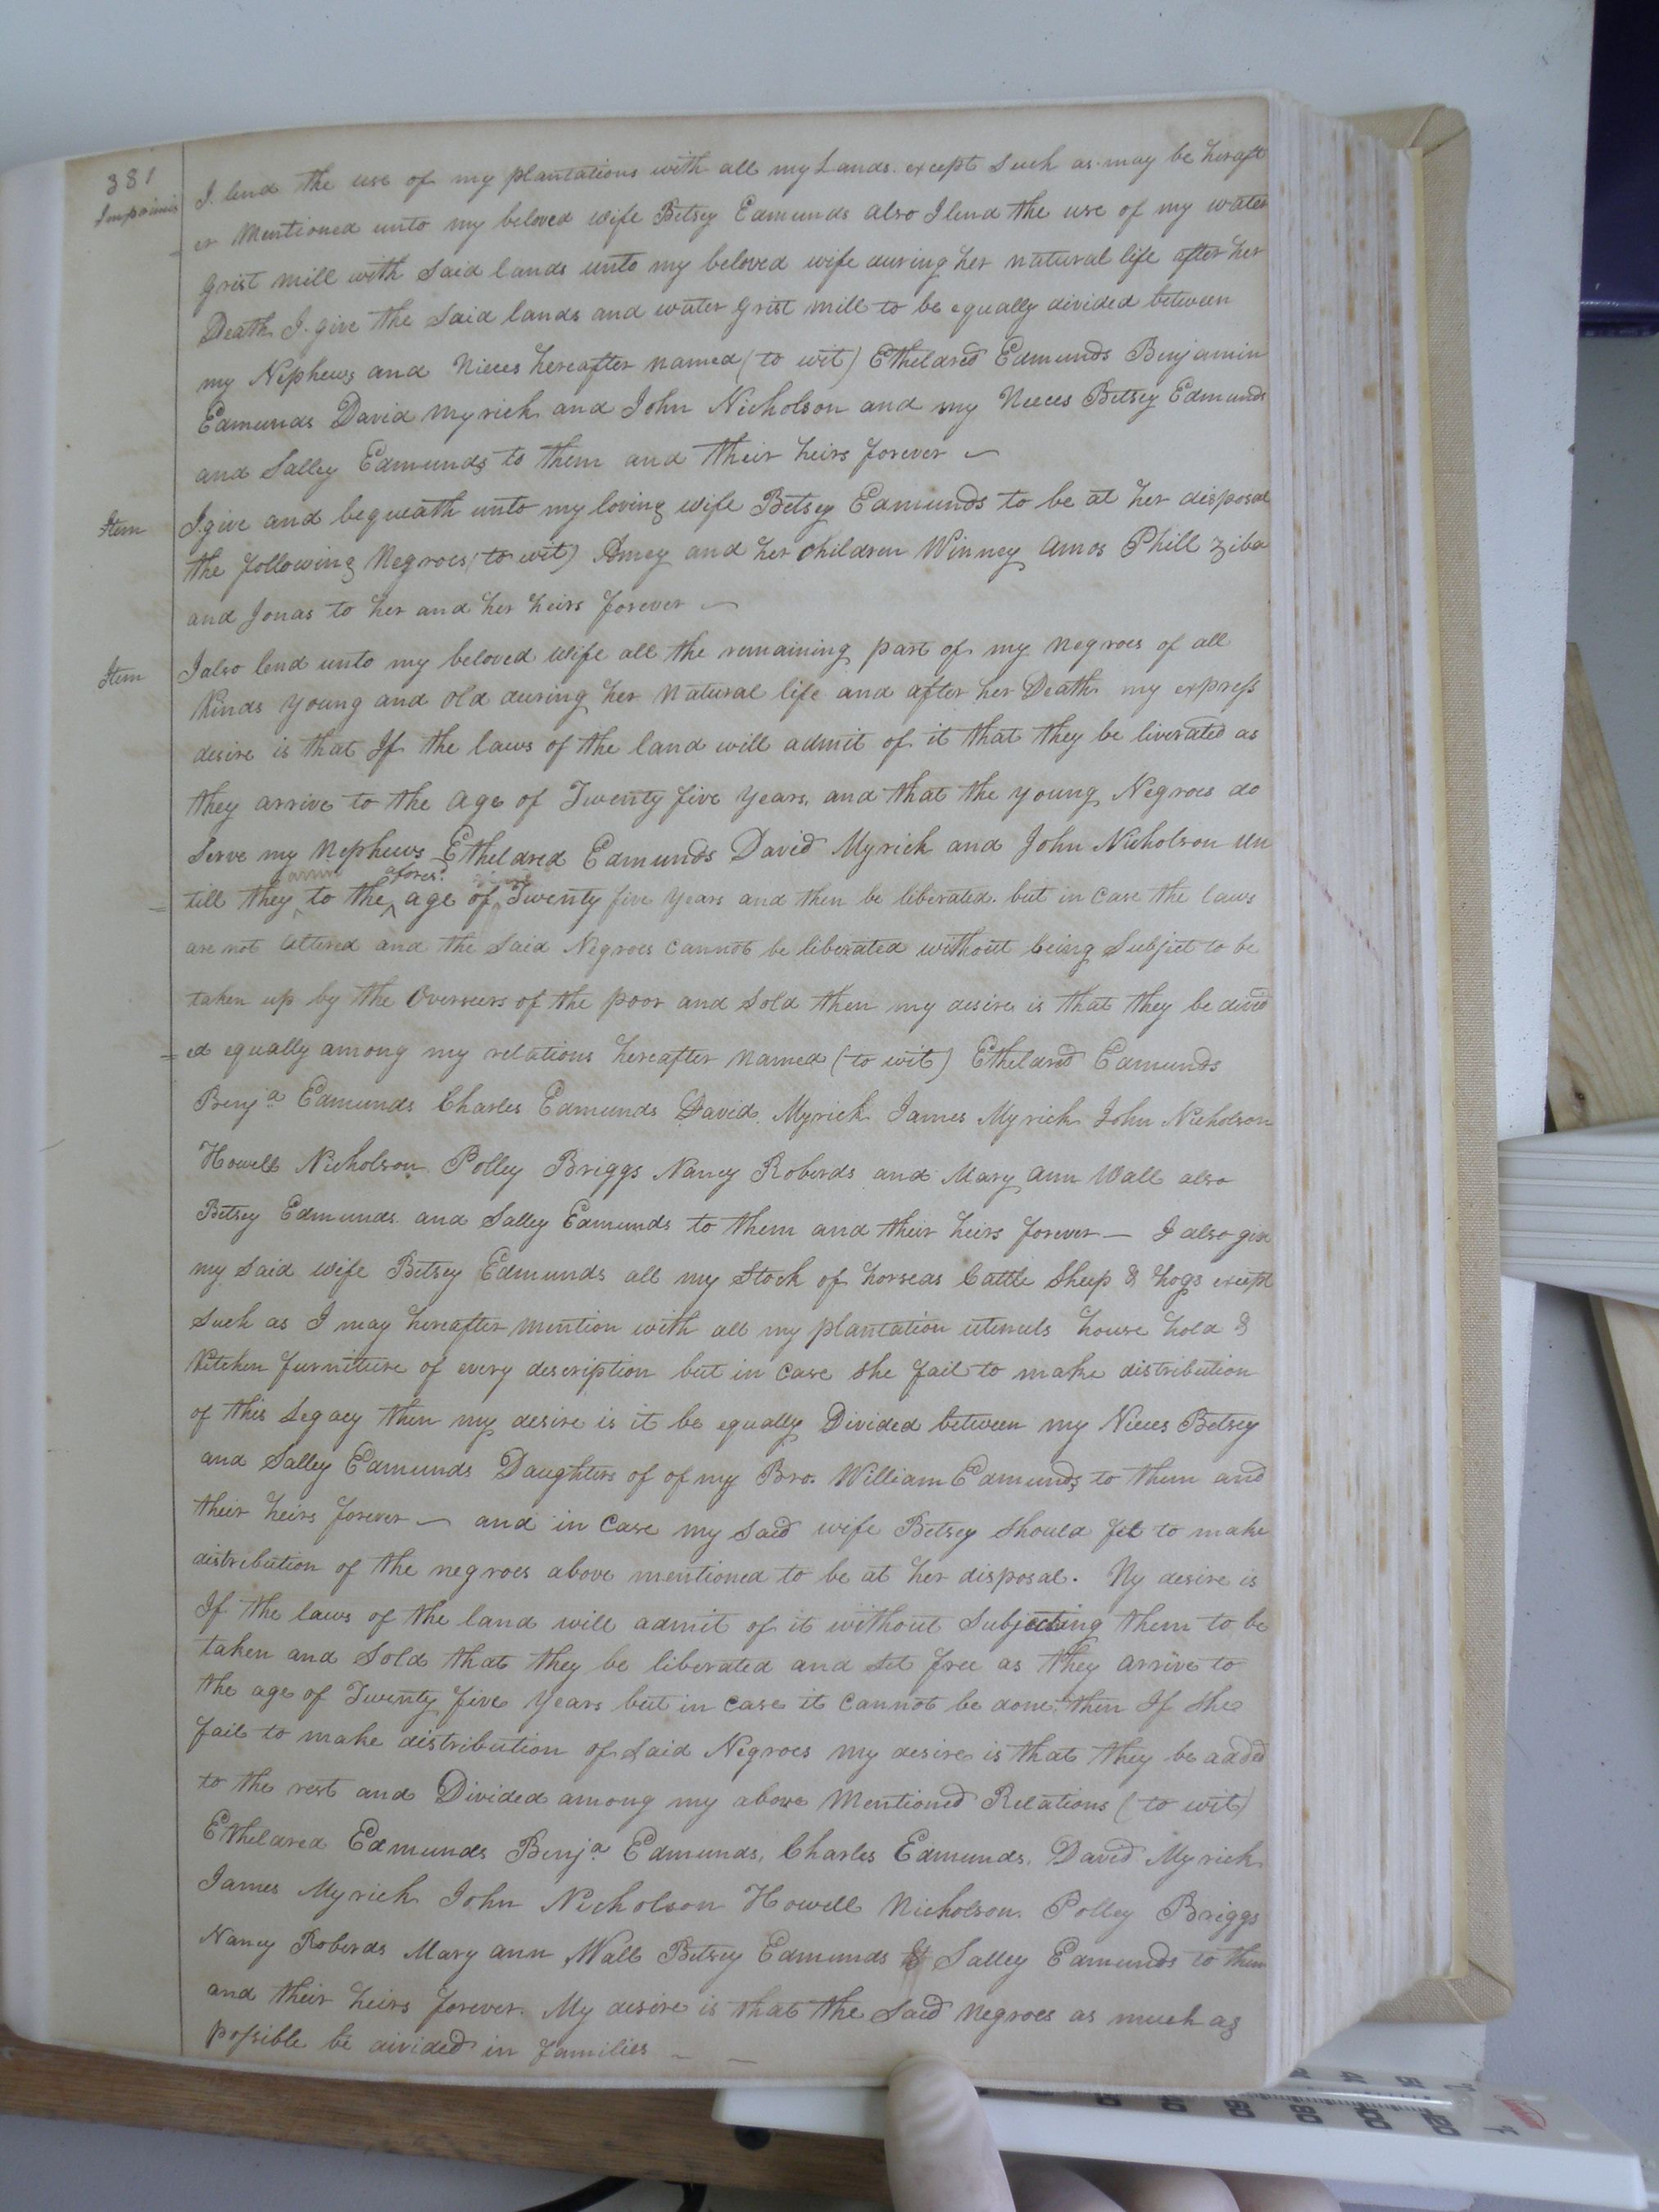 381
Imprimis I lend the use of my plantations with all my Lands except Such as may be hereaft
er Mentioned unto my beloved wife Betsey Edmunds also I lend the use of my water
grist mill with Said lands unto my beloved wife during her natural life after her
Death I give the Said lands and water Grist mill to be equally divided between
my Nephews and Nieces hereafter named (to wit) Etheldred Edmunds Benjamin
Edmunds David Myrick and John Nicholson and my Nieces Betsey Edmunds
and Salley Edmunds to them and their heirs forever —
Item I give and bequeath unto my loving wife Betsey Edmunds to be at her disposal
the following Negroes (to wit) Amey and her Children Winney Amos Phill Ziba
and Jonas to her and her heirs forever —
Item I also lend unto my beloved wife all the remaining part of my negroes of all
Kinds Young and Old during her Natural life and after her Death my express
desire is that If the laws of the land will admit of it that they be liverated as
they arrive to the age of Twenty five Years, and that the young Negroes do
Serve my Nephews Etheldred Edmunds David Myrick and John Nicholson un
till they arrive to the aforesd. age of Twenty five Years and then be liberated. but in Case the laws
are not altered and the Said Negroes Cannot be liberated without being Subject to be
taken up by the Overseers of the poor and Sold then my desire is that they be divid
=ed equally among my relations hereafter Named (to wit) Etheldred Edmunds
Benja Edmunds Charles Edmunds David Myrick James Myrick John Nicholson
Howell Nicholson Polley Briggs Nancy Roberds and Mary Ann Wall also
Betsey Edmunds and Salley Edmunds to them and their heirs forever — I also give
my Said wife Betsey Edmunds all my Stock of horseas Cattle Sheep & hogs except
Such as I may hereafter mention with all my plantation utensuls house hold &
Kitchen furniture of every description but in Case she fail to make distribution
of this Legacy then my desire is it be equally Divided between my Nieces Betsey
and Salley Edmunds Daughters of of my Bro. William Edmunds to them and
their heirs forever — and in Case my Said wife Betsey Should fel to make
distribution of the negroes above mentioned to be at her disposal. My desire is
If the laws of the land will admit of it without Subjecting them to be
taken and Sold that they be liberated and Set free as they arrive to
the age of Twenty five Years but in case it Cannot be done, then If She
fail to make distribution of Said Negroes my desire is that they be added
to the rest and Divided among my above Mentioned Relations (to wit)
Etheldred Edmunds Benja Edmunds, Charles Edmunds, David Myrick
James Myrick John Nicholson Howell Nicholson. Polley Briggs
Nancy Roberds Mary Ann Wall Betsey Edmunds & Salley Edmunds to them
and their heirs forever. My desire is that the Said Negroes as much as
possible be divided in families — —